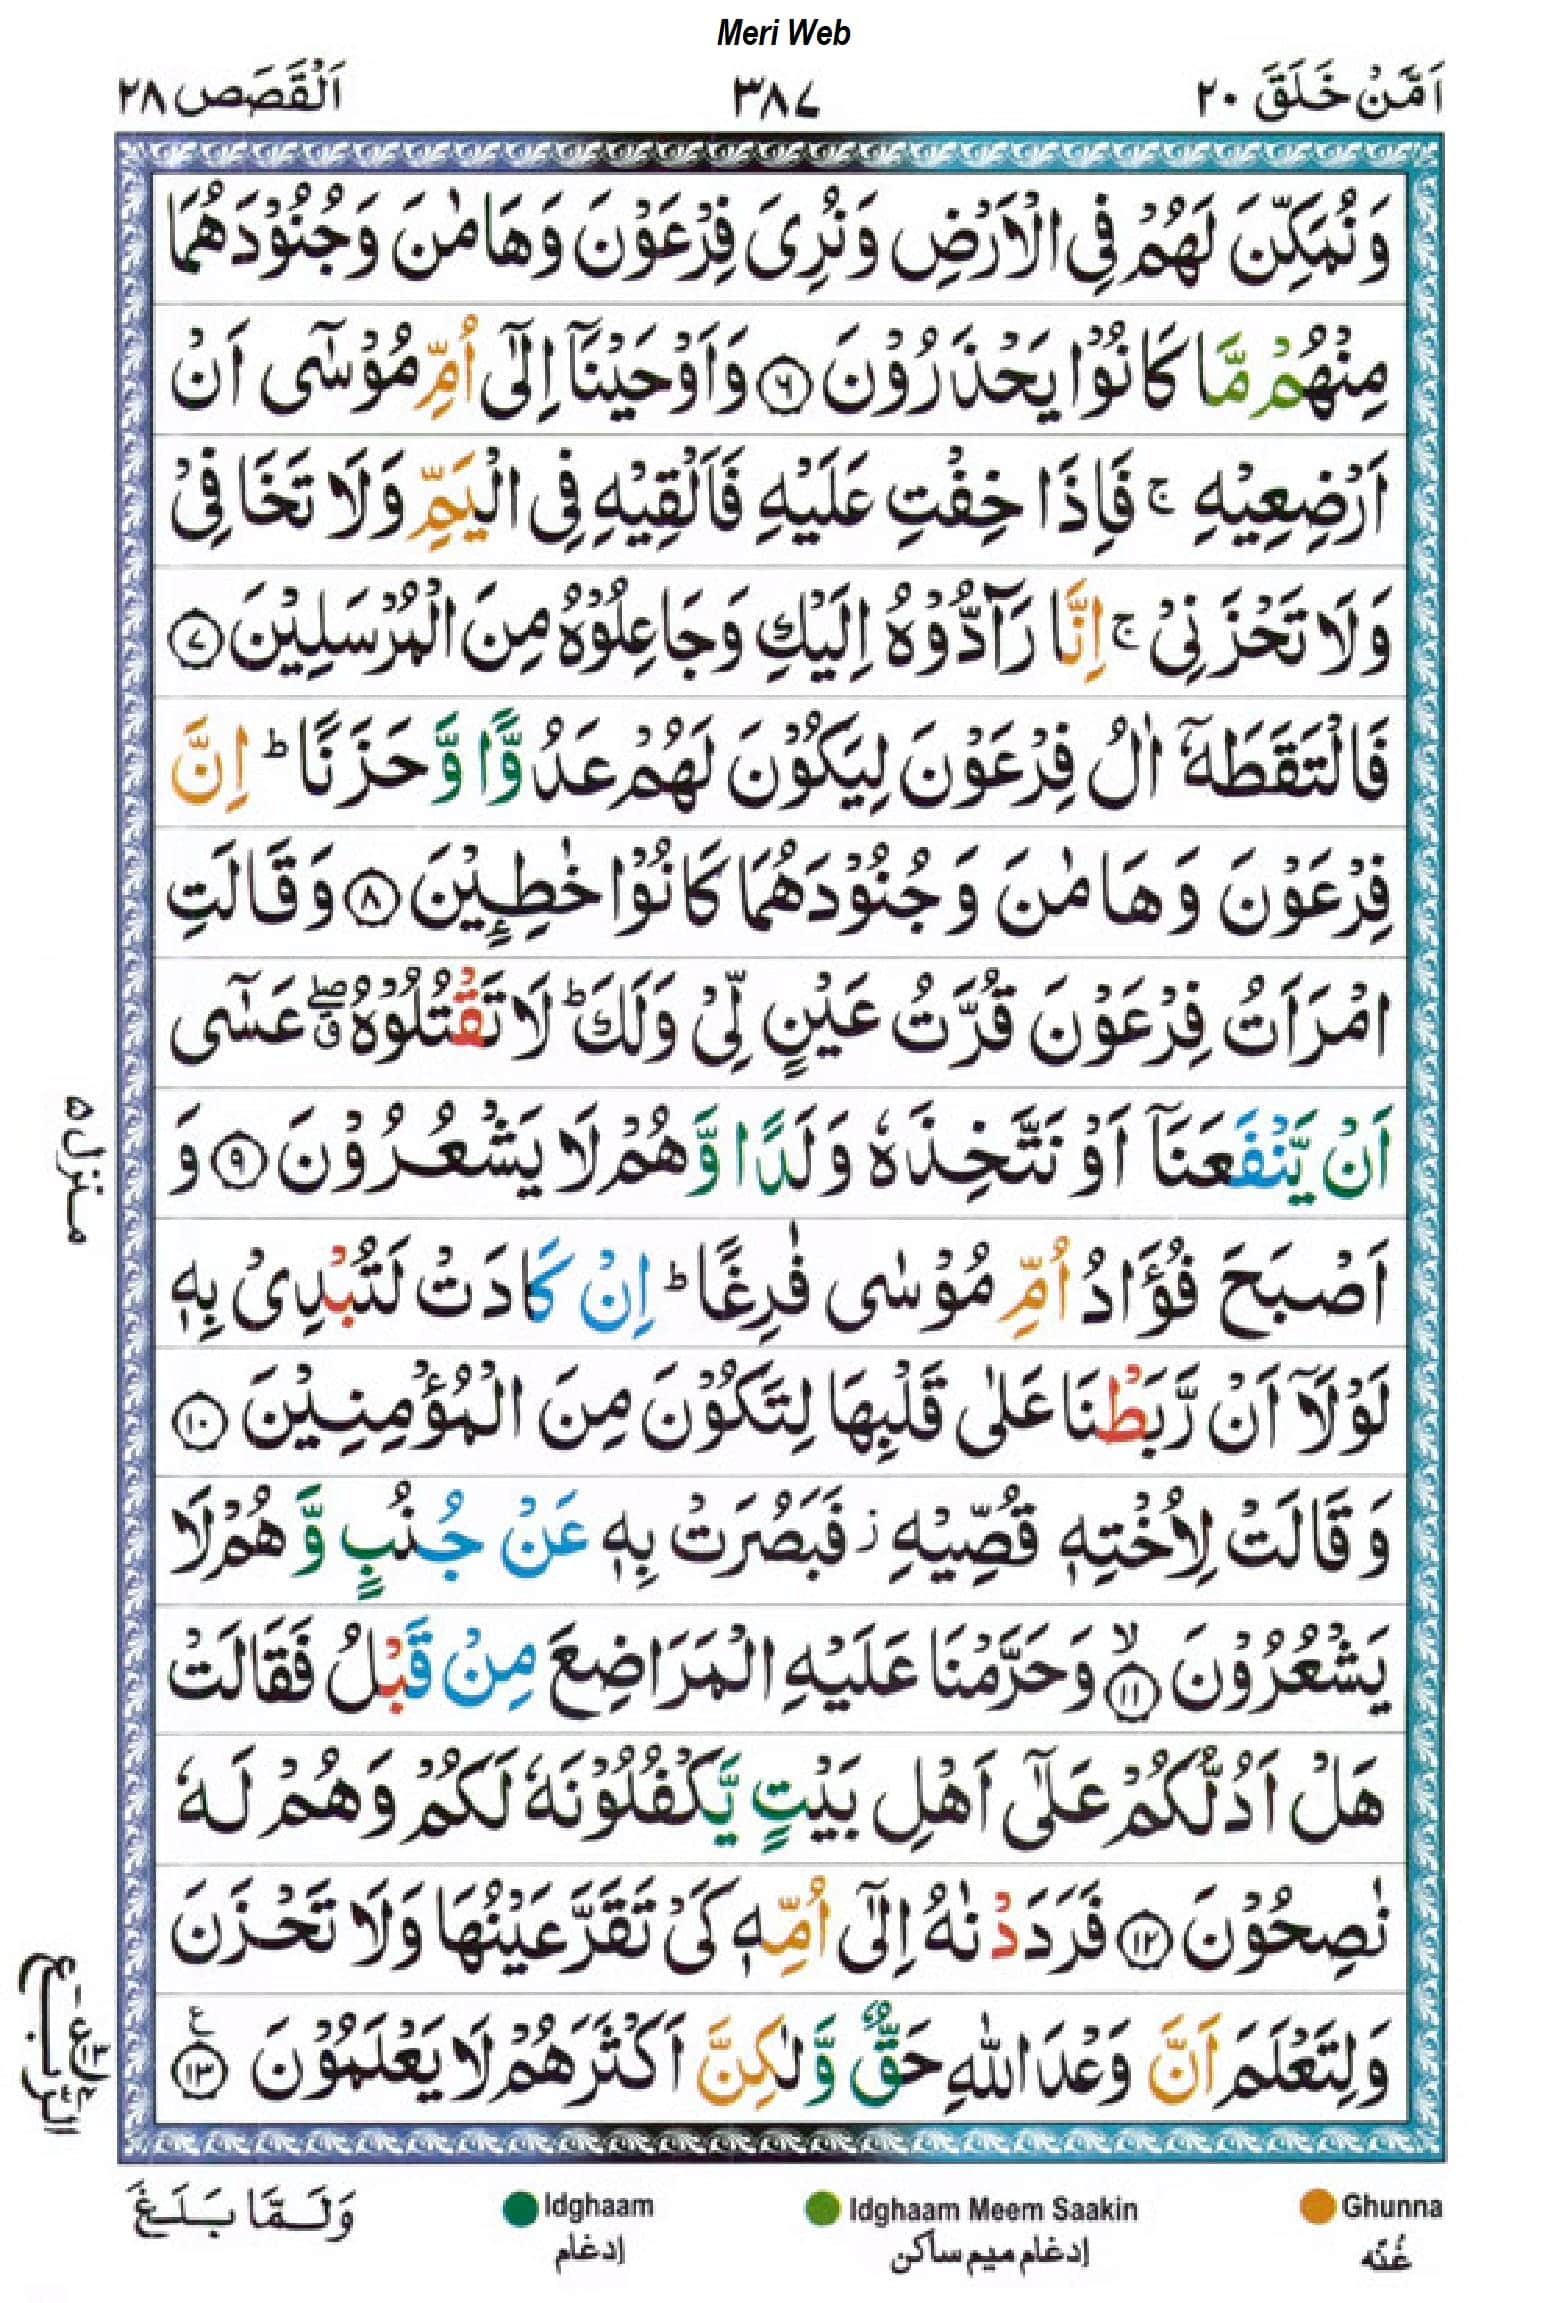 Meri Web
اَمَّنْ خَلَقَ ٢٠
٣٨٧
اَلْقَصَص ٢٨
وَنُمَكِّنَ لَهُمْ فِى الْاَرْضِ وَنُرِىَ فِرْعَوْنَ وَهَامٰنَ وَجُنُوْدَهُمَا
مِنْهُمْ مَّا كَانُوْا يَحْذَرُوْنَ ۝٦ وَاَوْحَيْنَآ اِلٰٓى اُمِّ مُوْسٰٓى اَنْ
اَرْضِعِيْهِ ۚ فَاِذَا خِفْتِ عَلَيْهِ فَاَلْقِيْهِ فِى الْيَمِّ وَلَا تَخَافِىْ
وَلَا تَحْزَنِىْ ۚ اِنَّا رَآدُّوْهُ اِلَيْكِ وَجَاعِلُوْهُ مِنَ الْمُرْسَلِيْنَ ۝٧
فَالْتَقَطَهٗٓ اٰلُ فِرْعَوْنَ لِيَكُوْنَ لَهُمْ عَدُوًّا وَّ حَزَنًا ؕ اِنَّ
فِرْعَوْنَ وَهَامٰنَ وَجُنُوْدَهُمَا كَانُوْا خٰطِـِٕيْنَ ۝٨ وَقَالَتِ
امْرَاَتُ فِرْعَوْنَ قُرَّتُ عَيْنٍ لِّىْ وَلَكَ ؕ لَا تَقْتُلُوْهُ ۖق عَسٰٓى
اَنْ يَّنْفَعَنَآ اَوْ نَتَّخِذَهٗ وَلَدًا وَّهُمْ لَا يَشْعُرُوْنَ ۝٩ وَ
اَصْبَحَ فُؤَادُ اُمِّ مُوْسٰى فٰرِغًا ؕ اِنْ كَادَتْ لَتُبْدِىْ بِهٖ
لَوْلَآ اَنْ رَّبَطْنَا عَلٰى قَلْبِهَا لِتَكُوْنَ مِنَ الْمُؤْمِنِيْنَ ۝١٠
وَقَالَتْ لِاُخْتِهٖ قُصِّيْهِ ز فَبَصُرَتْ بِهٖ عَنْ جُنُبٍ وَّهُمْ لَا
يَشْعُرُوْنَ ۙ‏۝١١ وَحَرَّمْنَا عَلَيْهِ الْمَرَاضِعَ مِنْ قَبْلُ فَقَالَتْ
هَلْ اَدُلُّكُمْ عَلٰٓى اَهْلِ بَيْتٍ يَّكْفُلُوْنَهٗ لَكُمْ وَهُمْ لَهٗ
نٰصِحُوْنَ ۝١٢ فَرَدَدْنٰهُ اِلٰٓى اُمِّهٖ كَىْ تَقَرَّ عَيْنُهَا وَلَا تَحْزَنَ
وَلِتَعْلَمَ اَنَّ وَعْدَ اللّٰهِ حَقٌّ وَّلٰكِنَّ اَكْثَرَهُمْ لَا يَعْلَمُوْنَ ۝١٣ ع
منزل ۵
الربع
وَلَـمَّا بَـلَـغَ
Idghaam
إدغام
Idghaam Meem Saakin
إدغام ميم ساكن
Ghunna
غُنّه